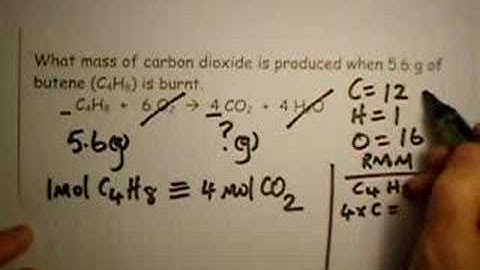 What mass of carbon dioxide is produced when 5.6 g of
butene (C₄H₈) is burnt.
_ C₄H₈ + 6 O₂ → 4 CO₂ + 4 H₂O
5.6g ? g
1mol C₄H₈ ≡ 4 mol CO₂
C = 12
H = 1
O = 16
RMM
C₄H
4 x C =